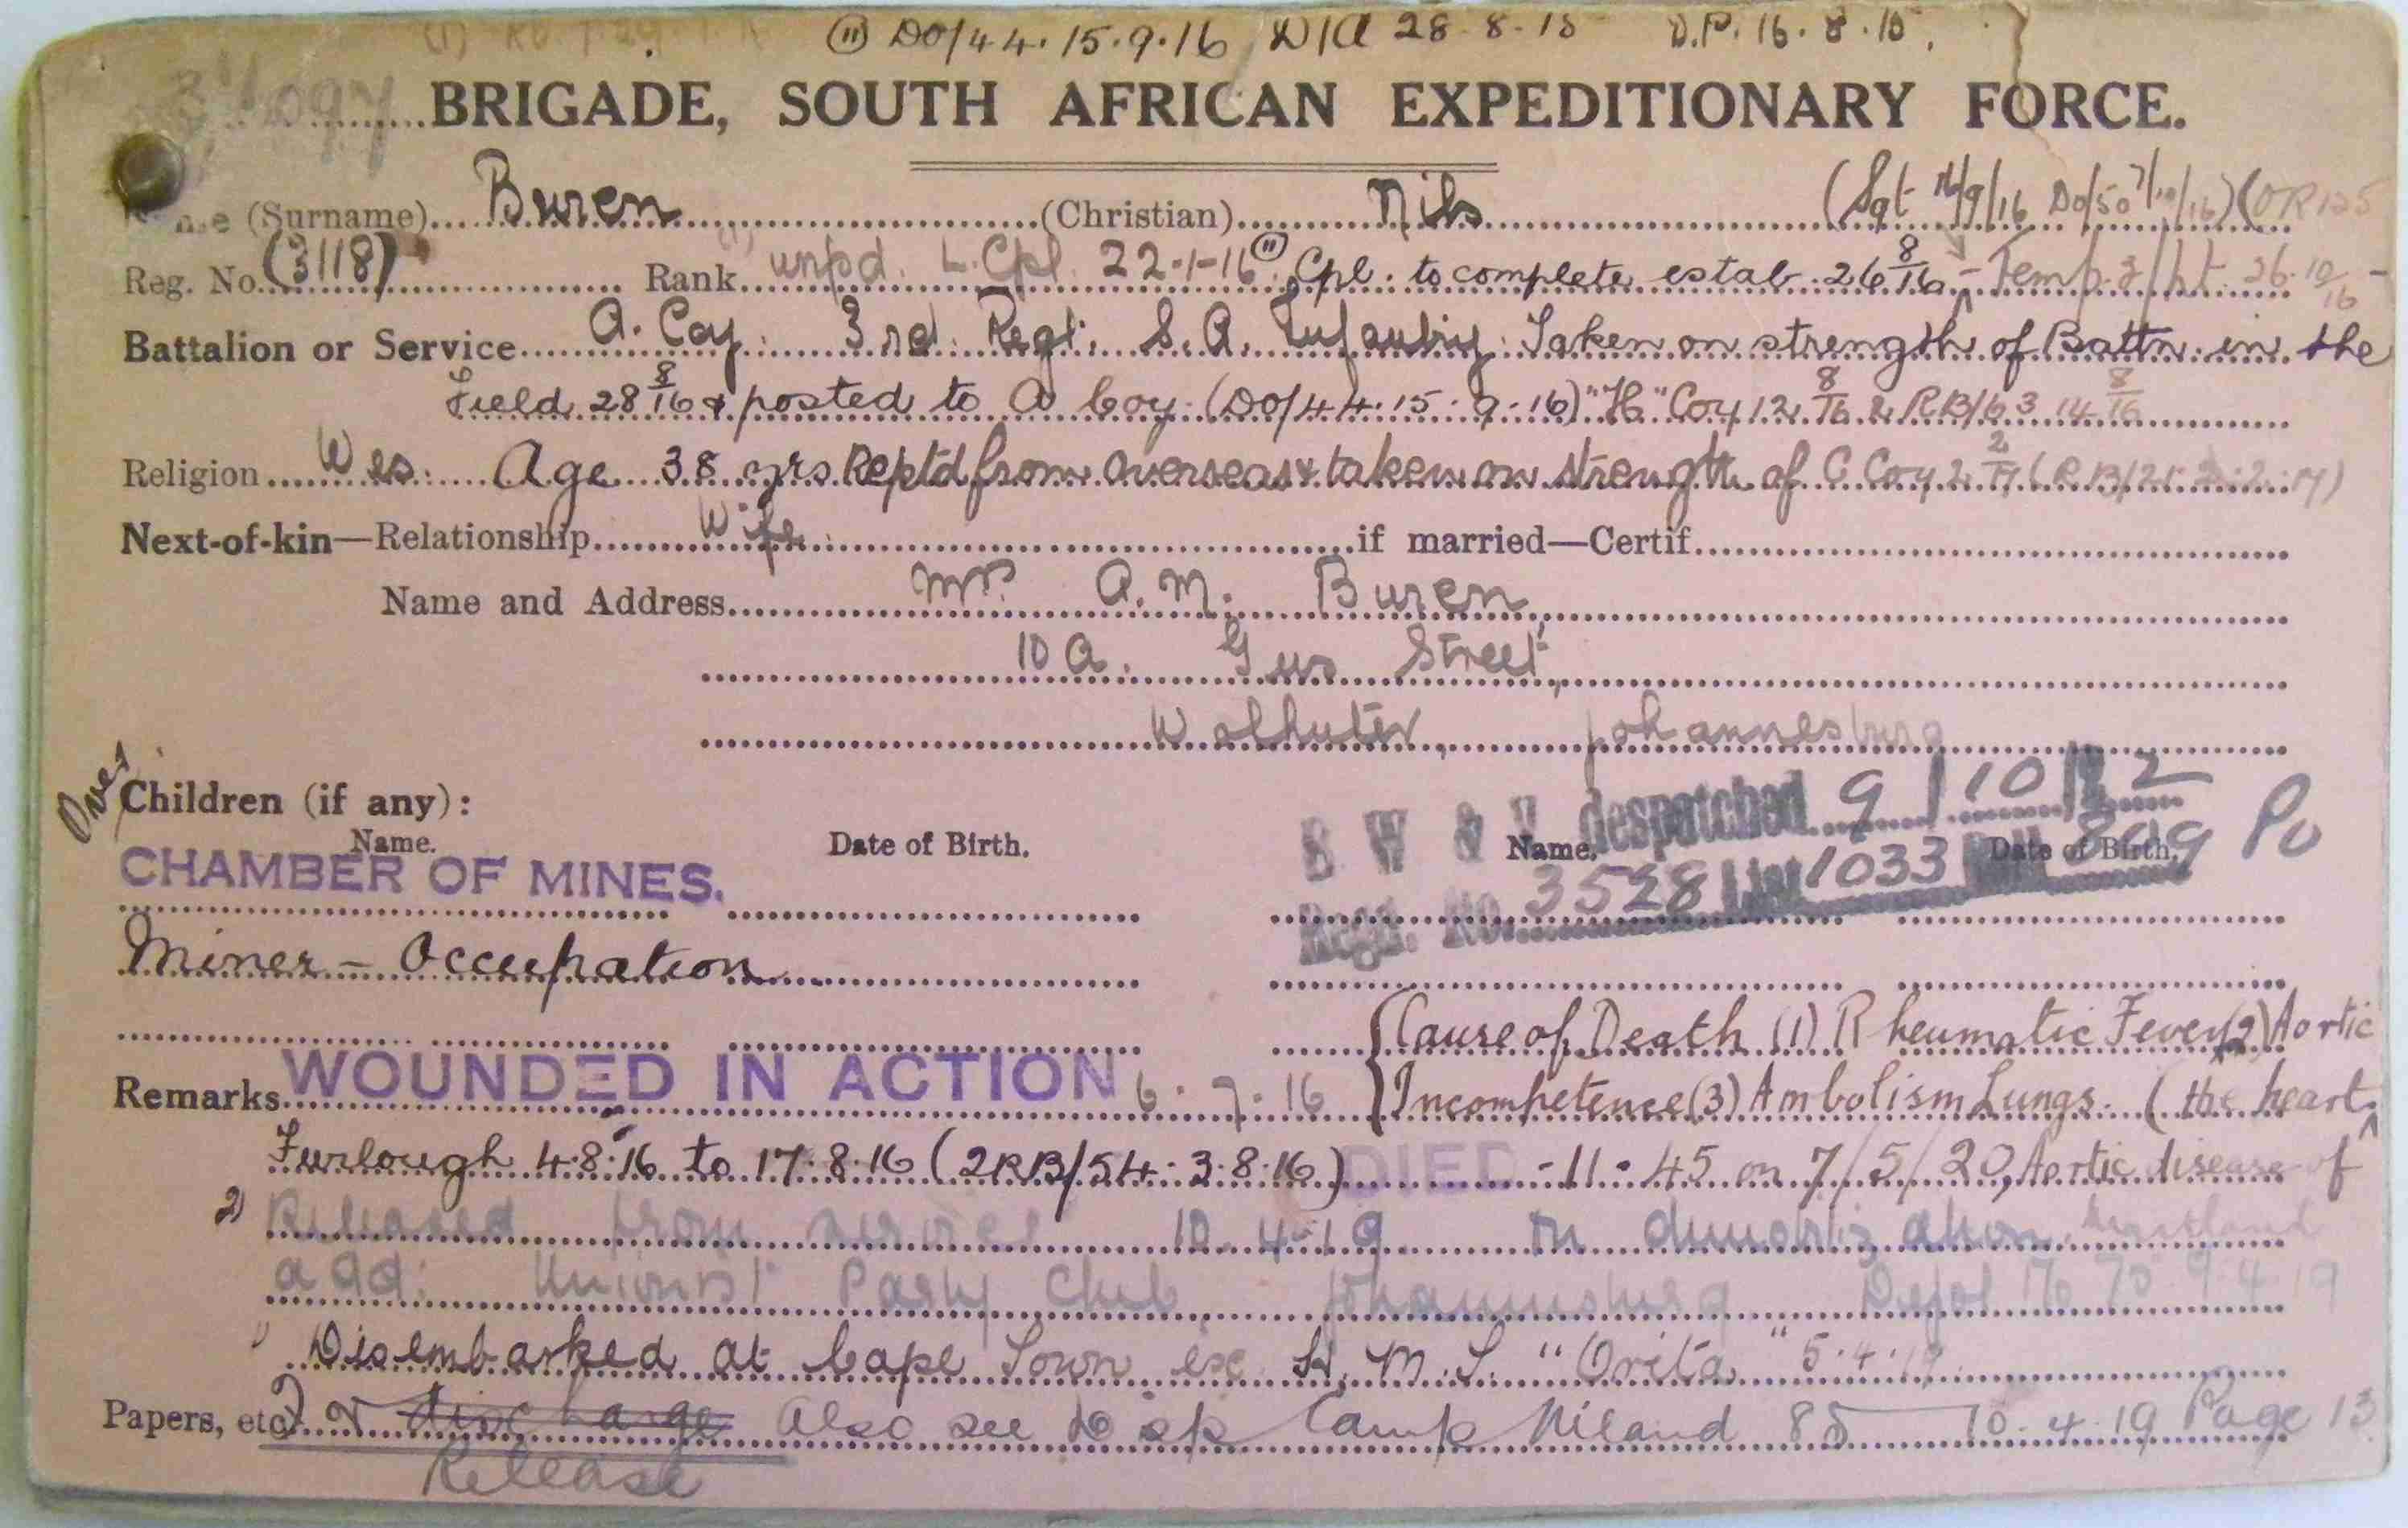 (11) DO/44. 15.9.16 D/A 28.8.15 D.P. 16.8.15.
BRIGADE, SOUTH AFRICAN EXPEDITIONARY FORCE.
(Surname) Buren (Christian) Nils (Sgt 14/9/16 DO/50 7/10/16) (OR 125
Reg. No. (3118) Rank unpd. L.Cpl. 22-1-16 (11) Cpl. to complete estab. 26 8/16 - Temp. 26.10/16 -
Battalion or Service A. Coy. 3rd Regt. S.A. Infantry Taken on strength of Battn. in the
Field 28 8/16 & posted to A Coy. (DO/44.15.9.16) "H" Coy 12 8/16 2 RB/63 14 8/16
Religion Wes. Age 38 yrs Reptd from overseas & taken on strength of C Coy 2 2/17 (RB/21. 2.2.17)
Next-of-kin—Relationship Wife if married—Certif.
Name and Address Mrs A.M. Buren,
10 A. Gus Street,
Wolhuter, Johannesburg
Over
Children (if any):
B W & V despatched 9/10/22
Name. Date of Birth. Name. Date of Birth.
CHAMBER OF MINES.
Regt. No. 3528 List 1033 Po
Miner - Occupation
{Cause of Death (1) Rheumatic Fever (2) Aortic
Remarks WOUNDED IN ACTION 6.7.16 Incompetence (3) Ambolism Lungs. (the heart.
Furlough 4.8.16 to 17.8.16 (2RB/54. 3.8.16) DIED - 11.45 on 7/5/20, Aortic disease of
2) Released from service 10.4.19 on demobilization
add: Unionist Party Club Johannesburg 9.4.19
Disembarked at Cape Town ex H.M.S. "Orita" 5.4.19
Papers, etc. discharge Also see Disp Camp 10.4.19 Page 13
Release